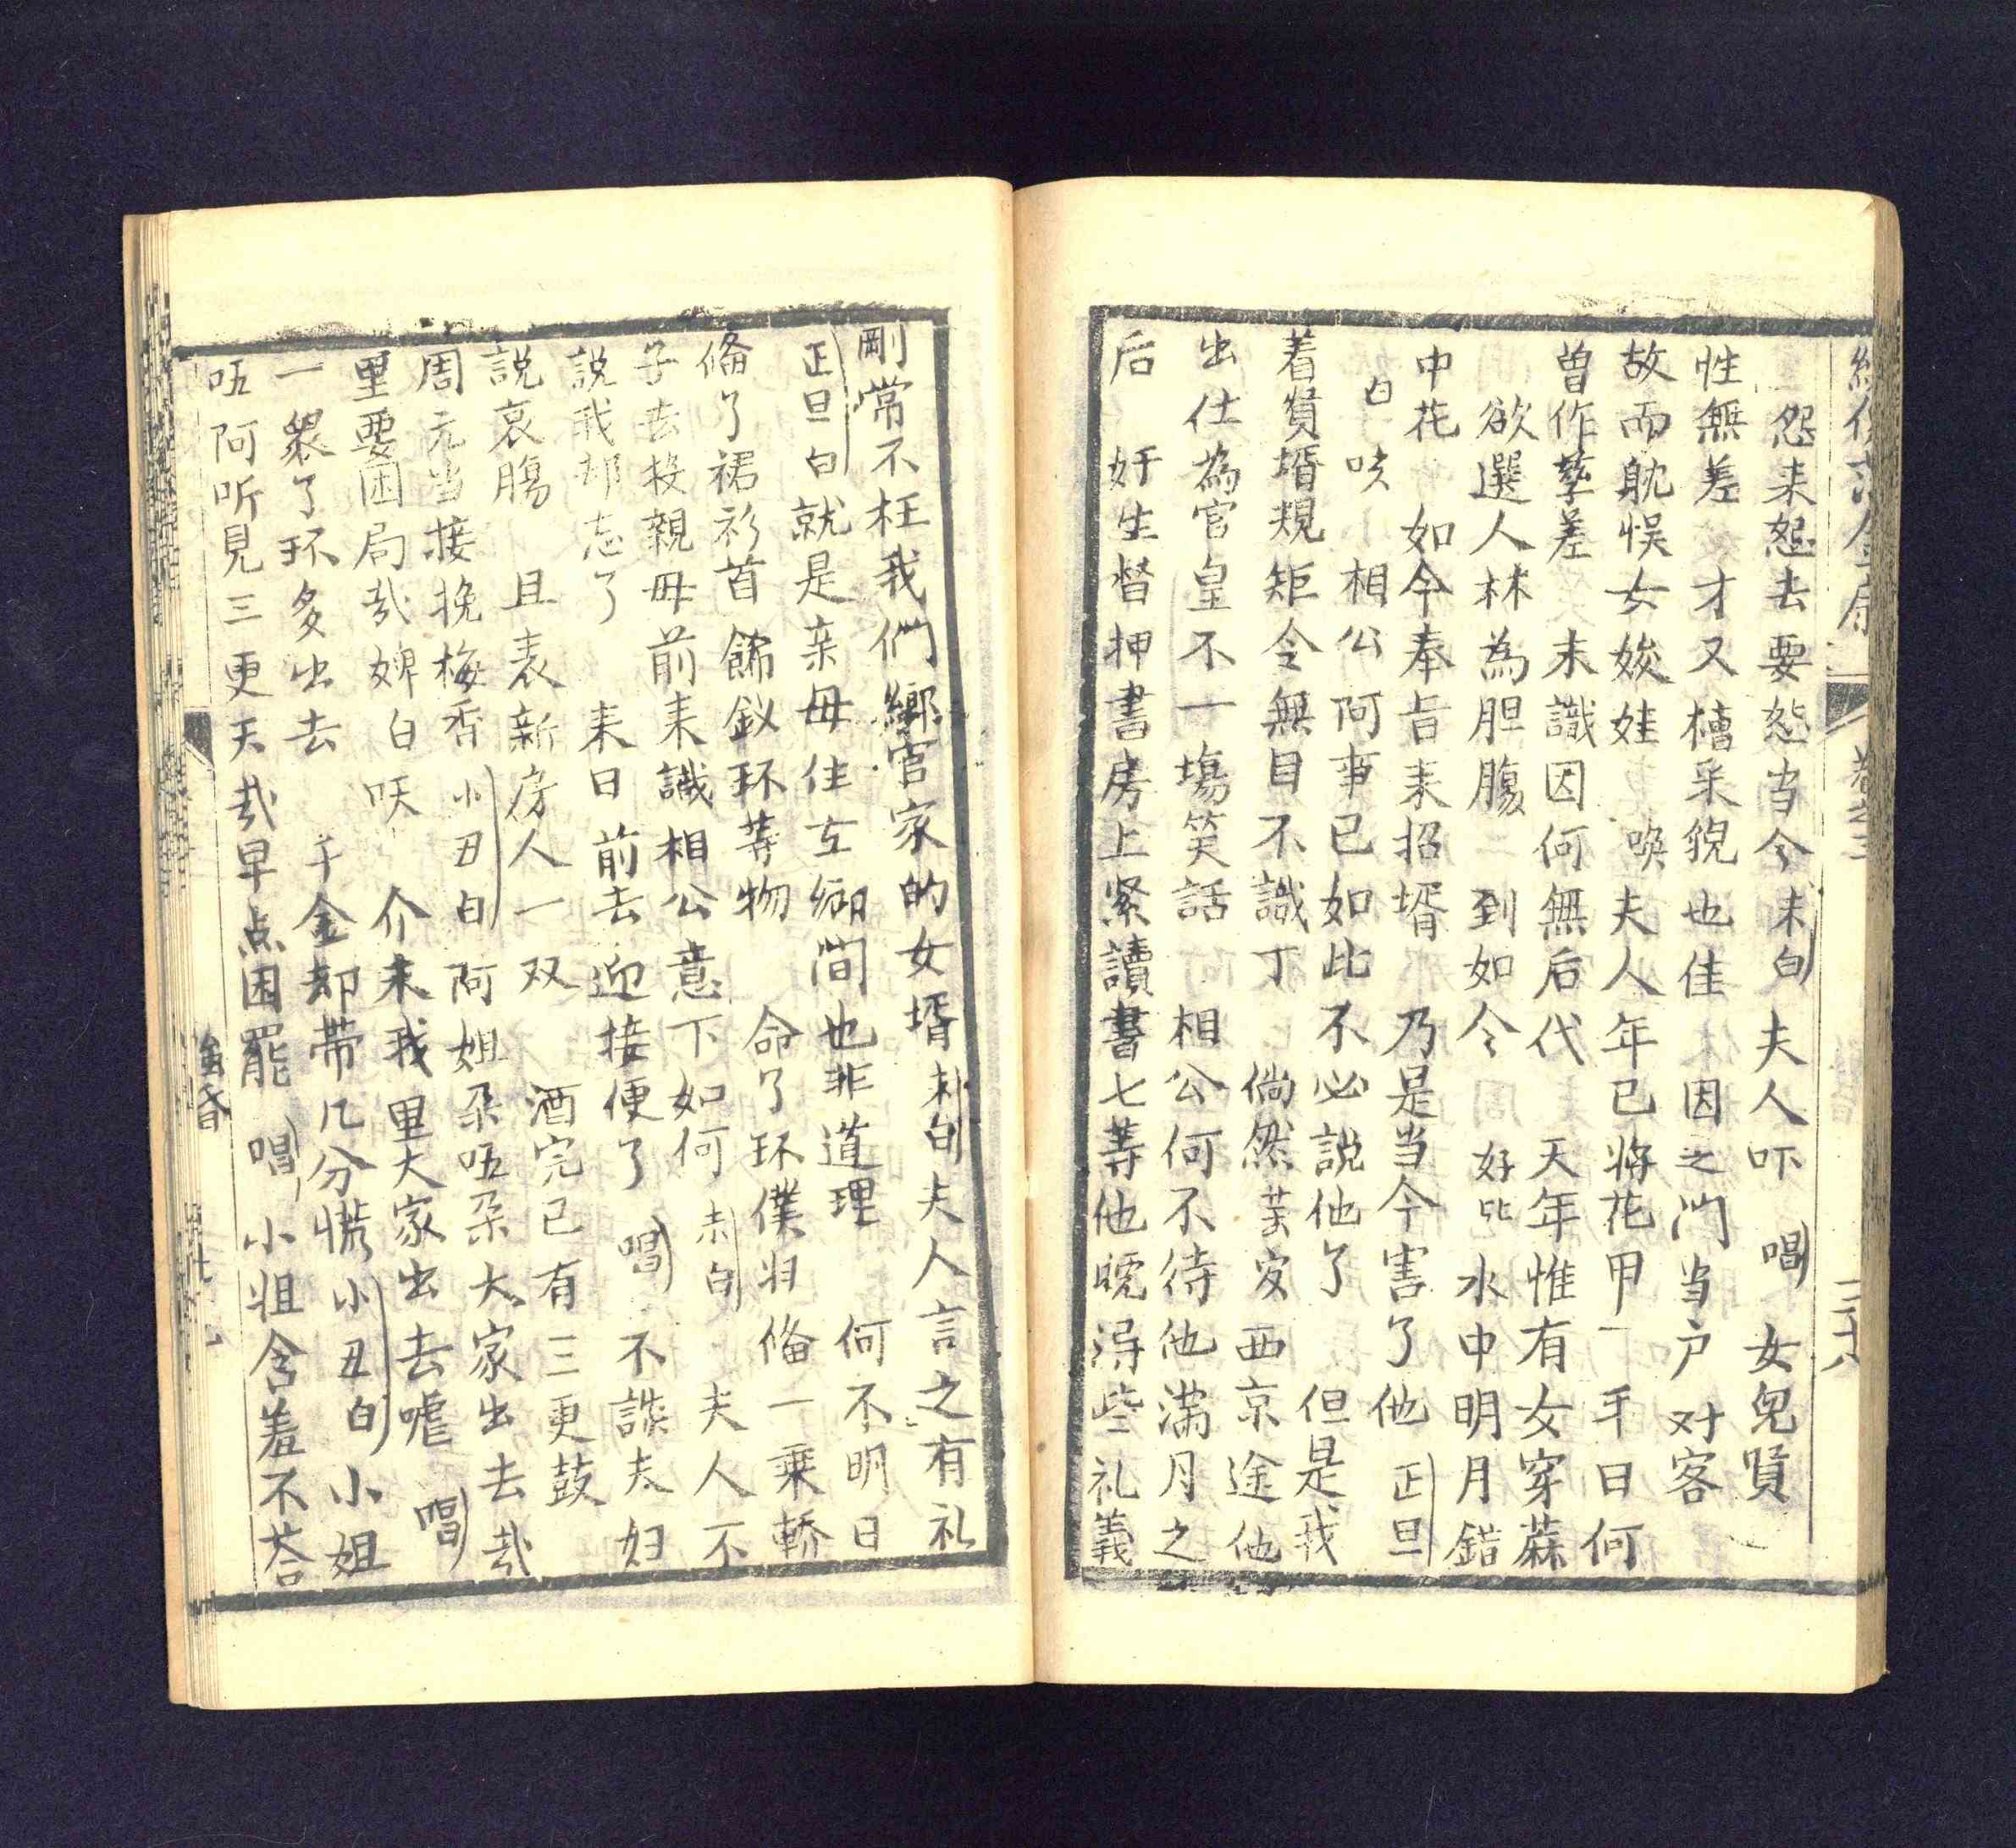 怨来怨去要怨当今末白夫人吓 唱 女兒賢
性無差 才又檜采貌也佳 因之门当户对客
故而躭悞女姣娃 唤夫人年已将花甲一 平日何
曽作孽差 未識因何無后代 天年惟有女穿蔴
欲選人林為胆腹 到如今 好比水中明月錯
中花 如今奉旨来招壻 乃是当今害了他 正旦
白 呋 相公阿事已如此不必説他了 但是我
着賢壻規矩令無目不識丁 倘然 西京途他
出仕為官皇不一塲笑話 相公何不待他滿月之
后 奸生督押書房上紧讀書七䓁他晓淂些礼義
剛常不枉我們鄉官家的女壻末白夫人言之有礼
正旦白就是亲母住在鄉間也非道理 何不明日
俻了裙衫首餙釵环䓁物 命了环僕归俻一乗轎
子去投親母前来識相公意下如何末白 夫人不
説我却忘了 来日前去迎接便了 唱 不談夫妇
説哀膓 且表新房人一双 酒完已有三更鼓
周元当接挽梅香 小丑白 阿姐朵唔朵大家出去哉
里要困局哉婢白 呋 介末我里大家出去嘘 唱
一衆了环多出去 千金却带几分慌小丑白小姐
唔阿听見三更天哉早点困罷 唱 小姐含羞不荅